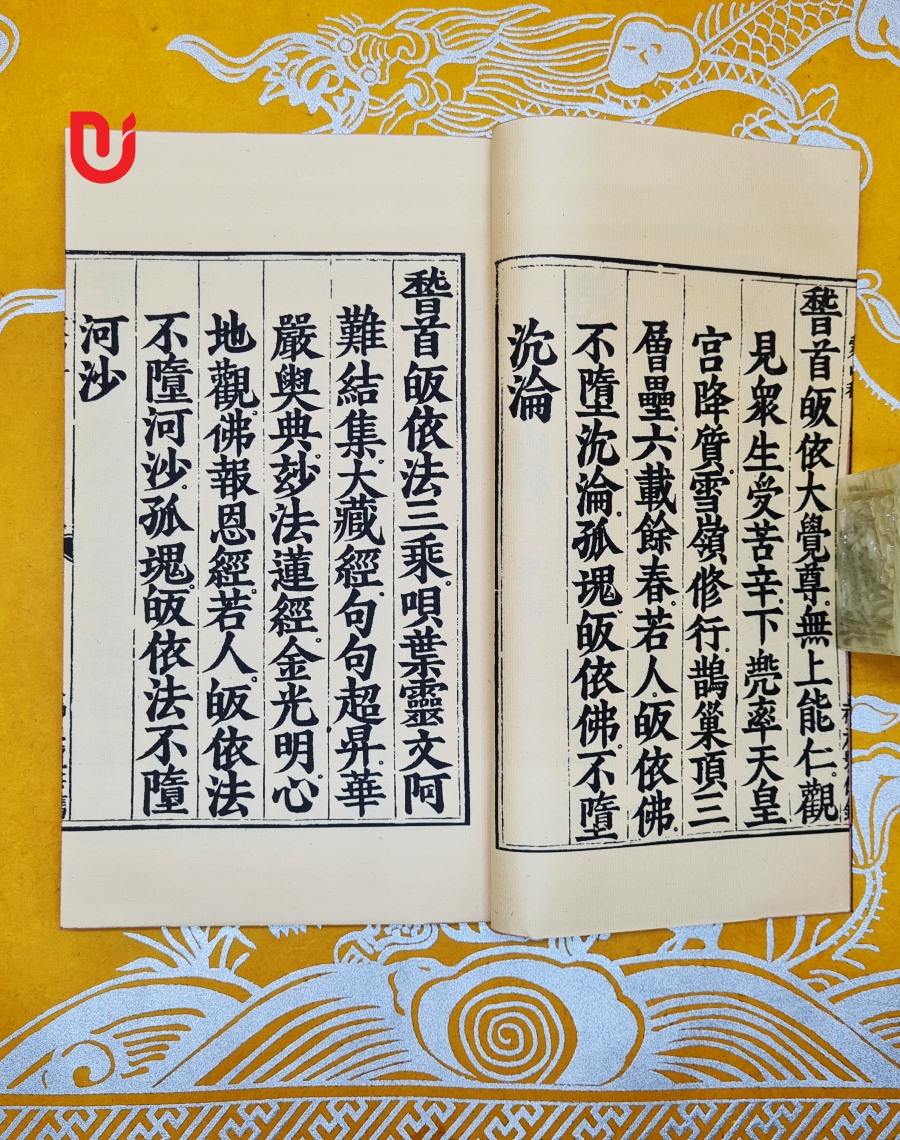 稽首皈依大覺尊。無上能仁。觀
見衆生受苦辛。下兜率天皇
宫降質。雪嶺修行。鵲巢頂三
層壘。六載餘春。若人。皈依佛。
不墮沉淪。孤魂皈依佛不墮
沉淪
稽首皈依法。三乘。唄葉靈文阿
難結集。大藏經。句句超昇。華
嚴奥典。玅法蓮經。金光明。心
地觀。佛報恩經。若人。皈依法
不墮河沙。孤魂。皈依法不墮
河沙